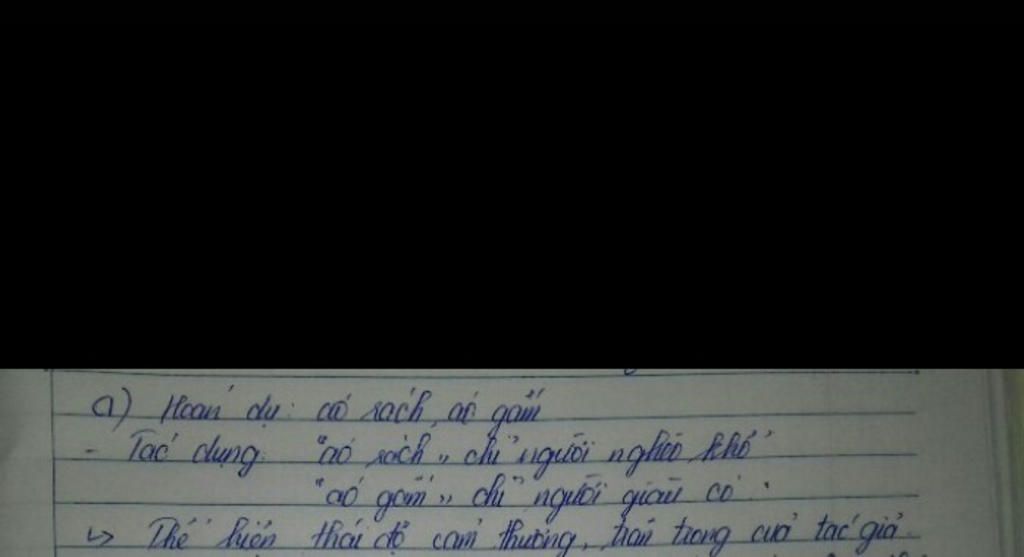 a) Hoán dụ: áo rách, áo gấm
- Tác dụng: "áo rách" chỉ người nghèo khổ
"áo gấm" chỉ người giàu có.
↳ Thể hiện thái độ cảm thương, trân trọng của tác giả.